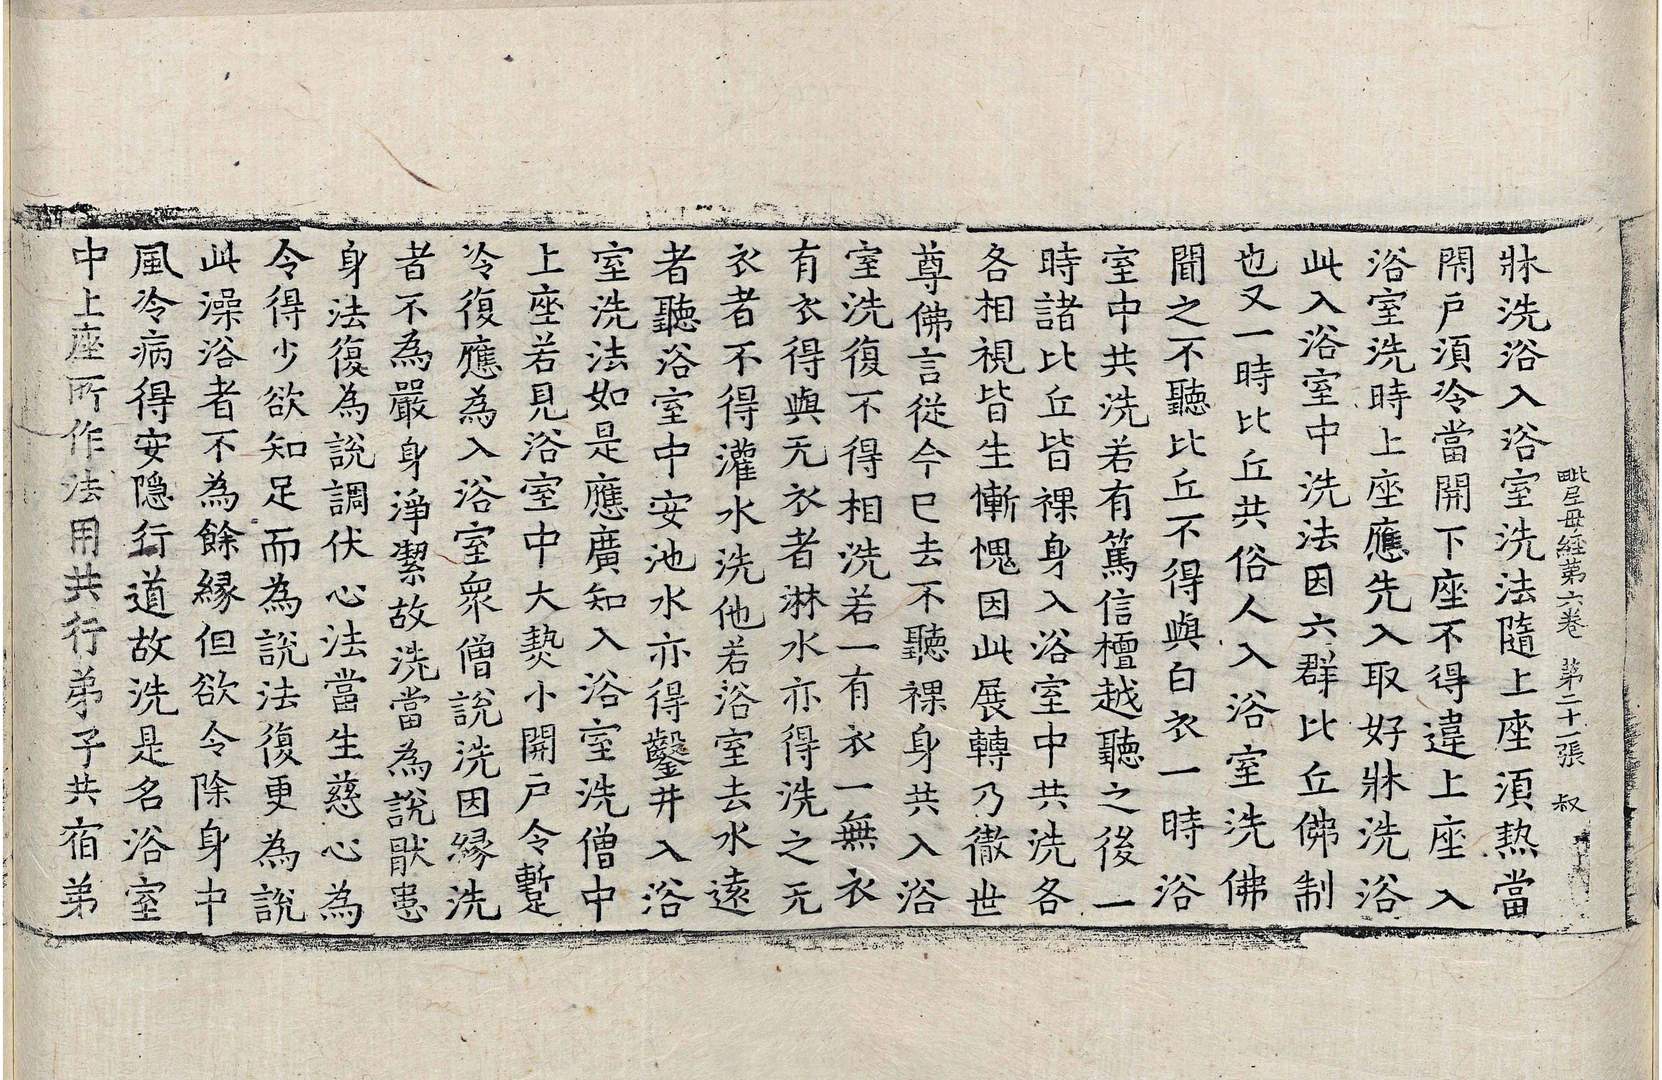 毗尼母經第六卷 第二十一張 叔
牀洗浴入浴室洗法隨上座湏熱當
閇戶湏冷當開下座不得違上座入
浴室洗時上座應先入取好牀洗浴
此入浴室中洗法因六群比丘佛制
也又一時比丘共俗人入浴室洗佛
聞之不聽比丘不得與白衣一時浴
室中共洗若有篤信檀越聽之後一
時諸比丘皆裸身入浴室中共洗各
各相視皆生慚愧因此展轉乃徹世
尊佛言從今已去不聽裸身共入浴
室洗復不得相洗若一有衣一無衣
有衣得與无衣者淋水亦得洗之无
衣者不得灌水洗他若浴室去水遠
者聽浴室中安池水亦得鑿井入浴
室洗法如是應廣知入浴室洗僧中
上座若見浴室中大𤍠小開戶令蹔
冷復應為入浴室衆僧說洗因縁洗
者不為嚴身淨潔故洗當為說猒患
身法復為說調伏心法當生慈心為
令得少欲知足而為說法復更為說
此澡浴者不為餘縁但欲令除身中
風冷病得安隱行道故洗是名浴室
中上座所作法用共行弟子共宿弟